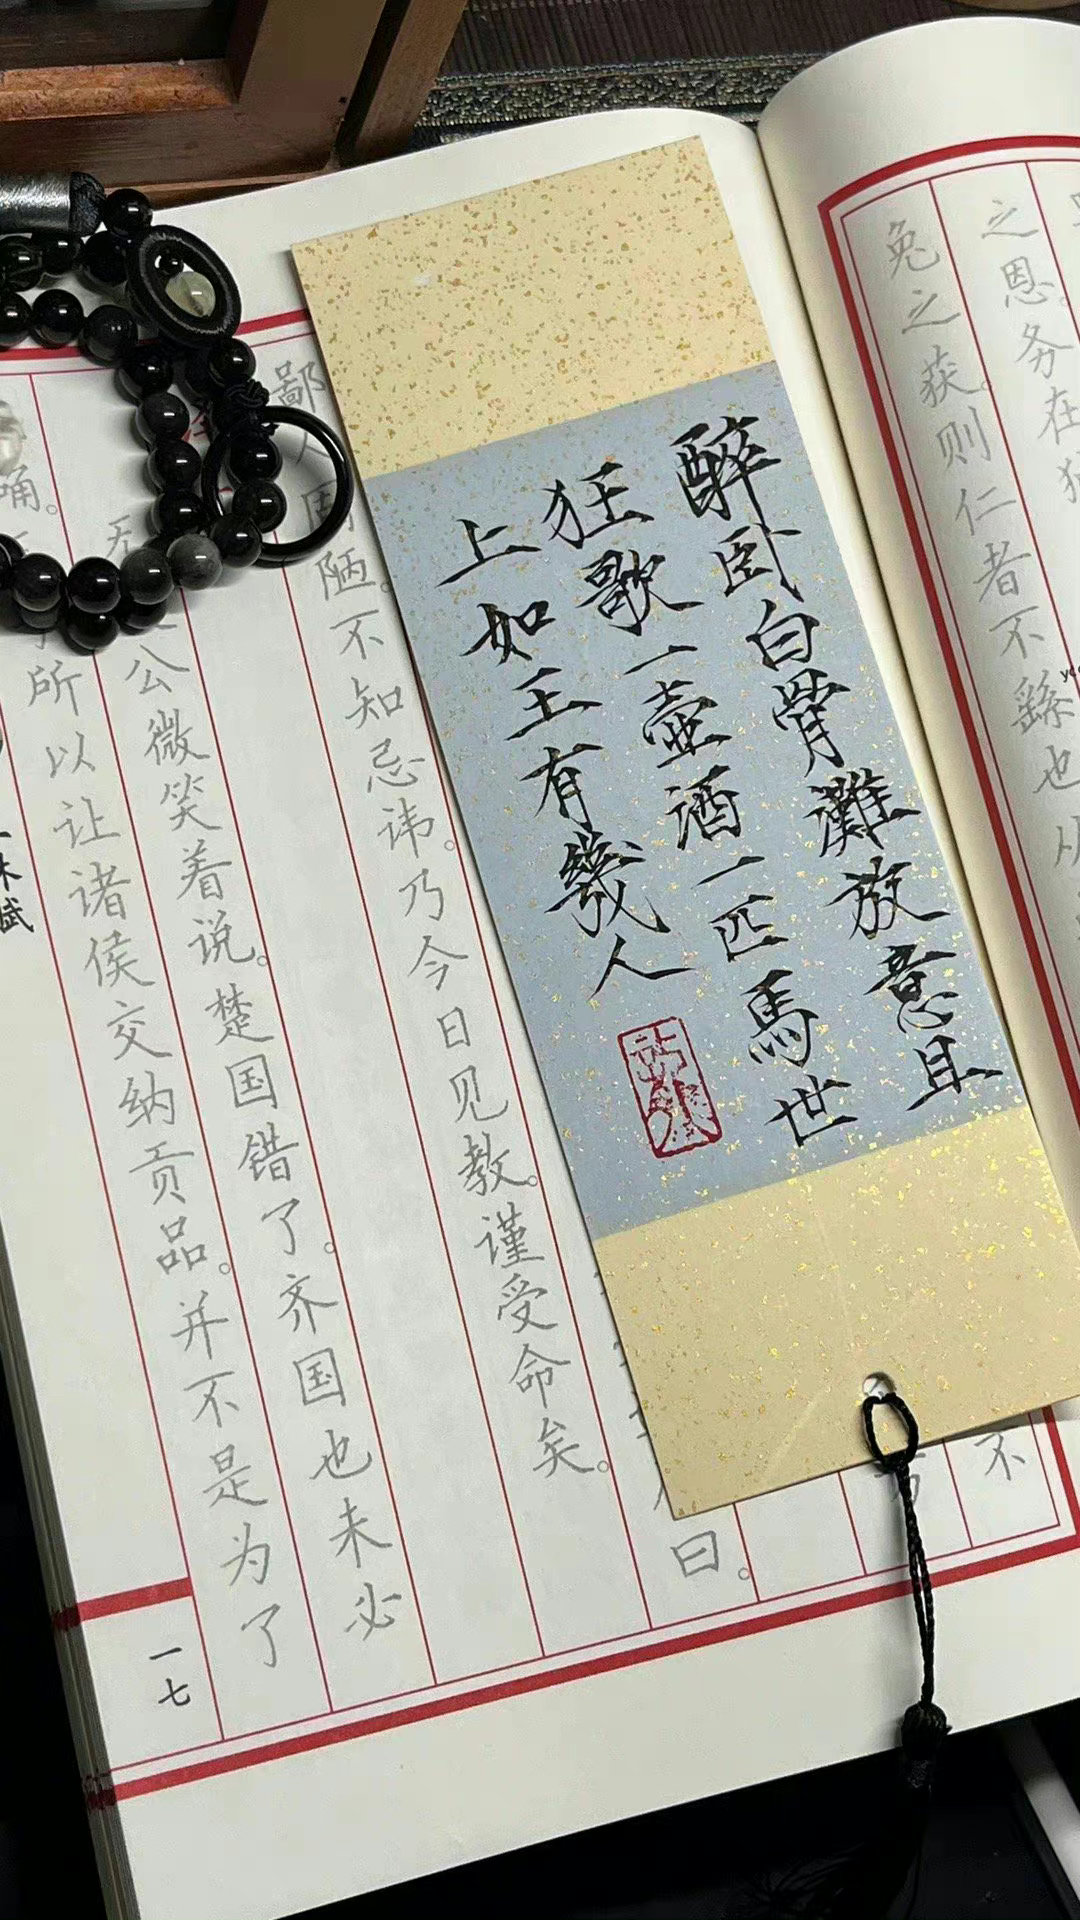 醉卧白骨灘放意且
狂歌一壺酒一匹馬世
上如王有幾人
之恩务在
兔之获则仁者不繇也从
不
曰。
鄙人固陋。不知忌讳。乃今日见教。谨受命矣。
公微笑着说。楚国错了。齐国也未必
所以让诸侯交纳贡品。并不是为了
诵。
一七